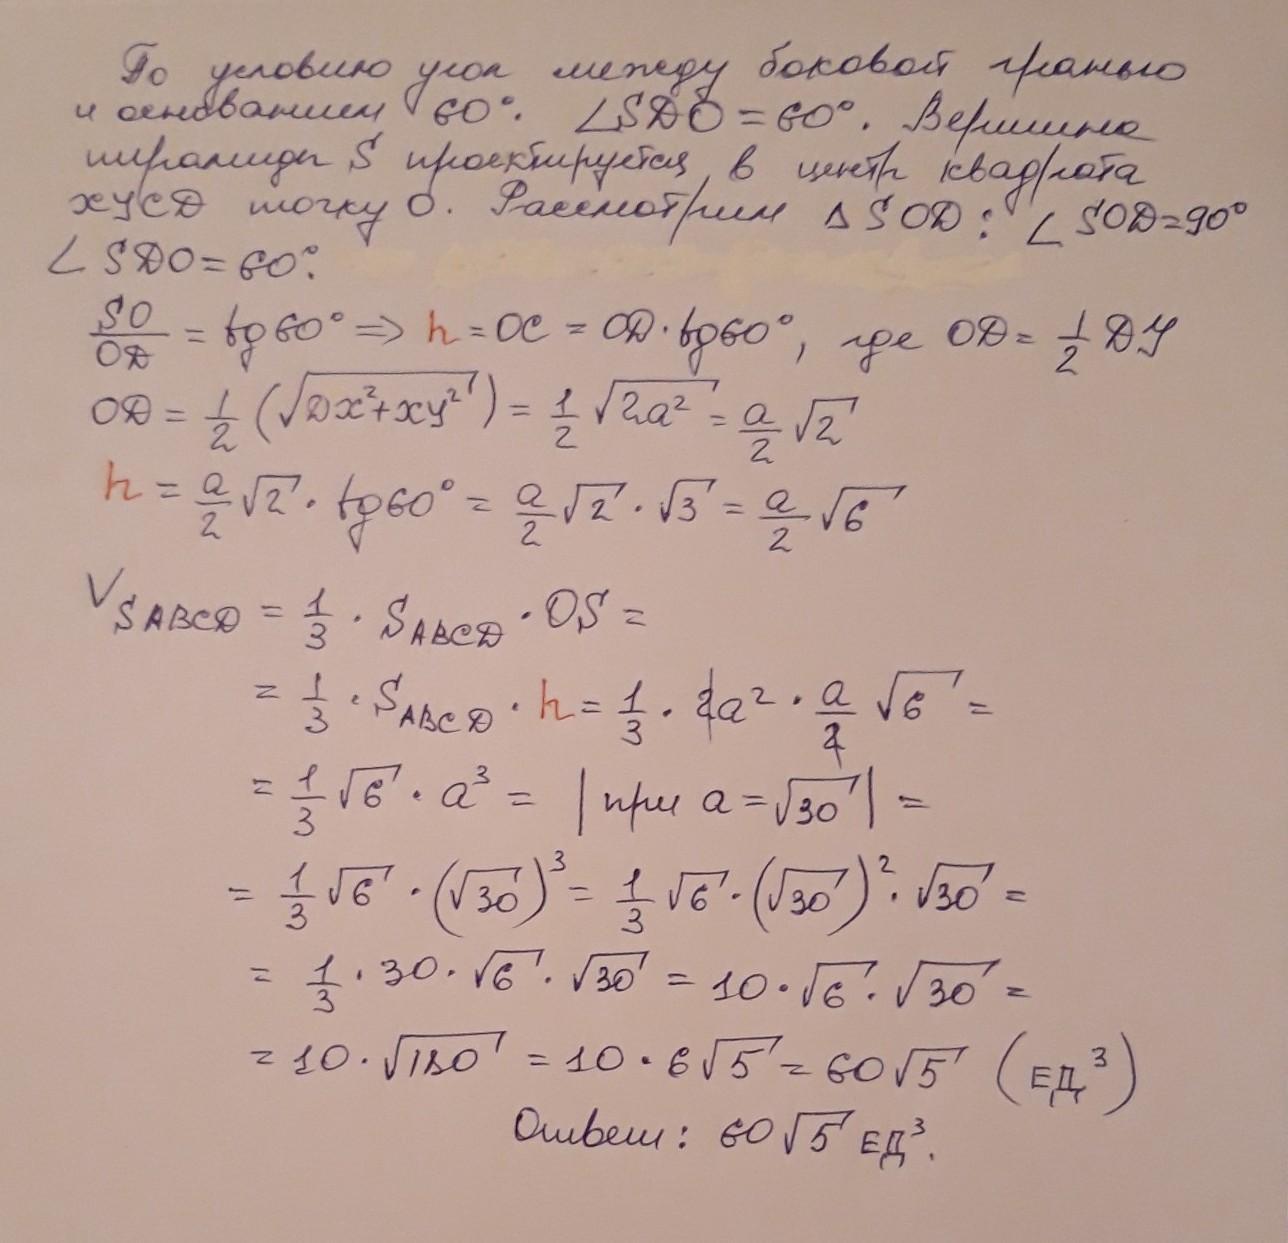 По условию угол между боковой гранью
и основанием 60°. ∠SDO = 60°. Вершина
пирамиды S проектируется в центр квадрата
XYCD точку O. Рассмотрим ΔSOD: ∠SOD=90°
∠SDO = 60°.
SO/OD = tg60° => h = OC = OD · tg60°, где OD = 1/2 DY
OD = 1/2 (√(DX²+XY²)) = 1/2 √(2a²) = a/2 √2
h = a/2 √2 · tg60° = a/2 √2 · √3 = a/2 √6
V SABCD = 1/3 · S ABCD · OS =
= 1/3 · S ABCD · h = 1/3 · 2a² · a/2 √6 =
= 1/3 √6 · a³ = | при a = √30 | =
= 1/3 √6 · (√30)³ = 1/3 √6 · (√30)² · √30 =
= 1/3 · 30 · √6 · √30 = 10 · √6 · √30 =
= 10 · √180 = 10 · 6√5 = 60√5 (ЕД³)
Ответ: 60√5 ЕД³.